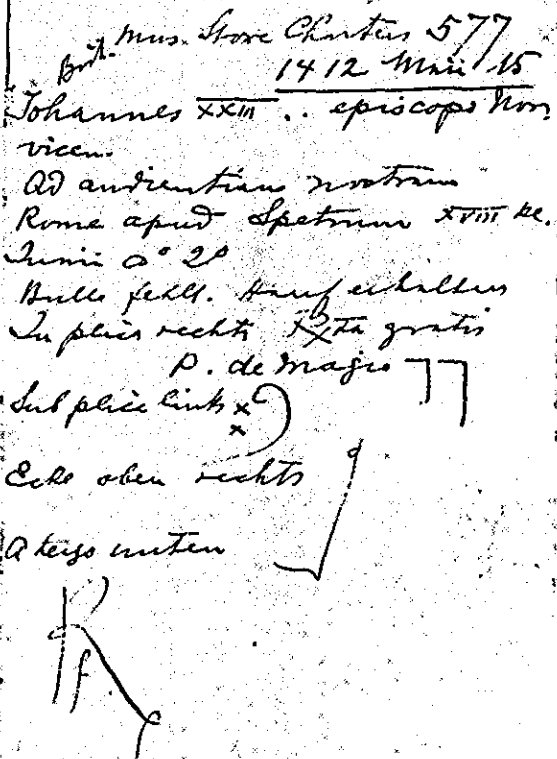 Brit. Mus. Stowe Charters 577
1412 Maii 15
Johannes XXIII .. episcopo Nor
vicen.
Ad audientiam nostram
Rome apud Spetrum XVIII kl.
Junii a° 2°
Bulle fehlt. Hanf erhalten
In plica rechts Rta gratis
P. de Magio
Sub plica links x
x
Ecke oben rechts
A tergo unten
R
f